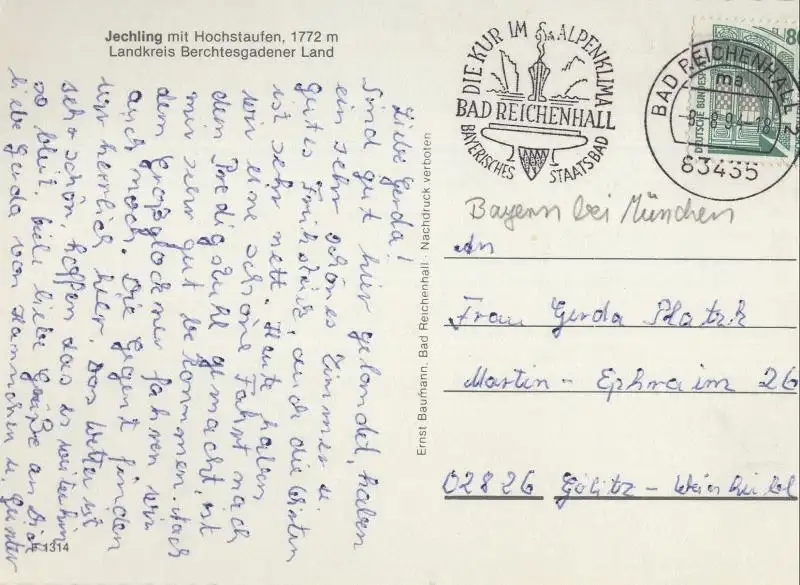 Jechling mit Hochstaufen, 1772 m
Landkreis Berchtesgadener Land
Liebe Gerda!
Sind gut hier gelandet, haben
ein sehr schönes Zimmer u.
gutes Frühstück, auch die Wirtin
ist sehr nett. Heute haben
wir eine schöne Fahrt nach
dem Predigstuhl gemacht, ist
mir sehr gut bekommen. Nach
dem Großglockner fahren wir
auch noch. Die Gegend finden
wir herrlich hier. Das Wetter ist
sehr schön, hoffen das es weiterhin
so bleibt. Viele liebe Grüße an Dich
liebe Gerda von Hannchen u. Günter
F 1314
Ernst Baumann, Bad Reichenhall · Nachdruck verboten
DIE KUR IM ALPENKLIMA
BAD REICHENHALL
BAYERISCHES STAATSBAD
DEUTSCHE BUNDES
80
BAD REICHENHALL 2
ma
-8.-8.94-18
83435
Bayern bei München
An
Frau Gerda Platzk
Martin - Ephraim 26
02826 Görlitz - Weinhübel